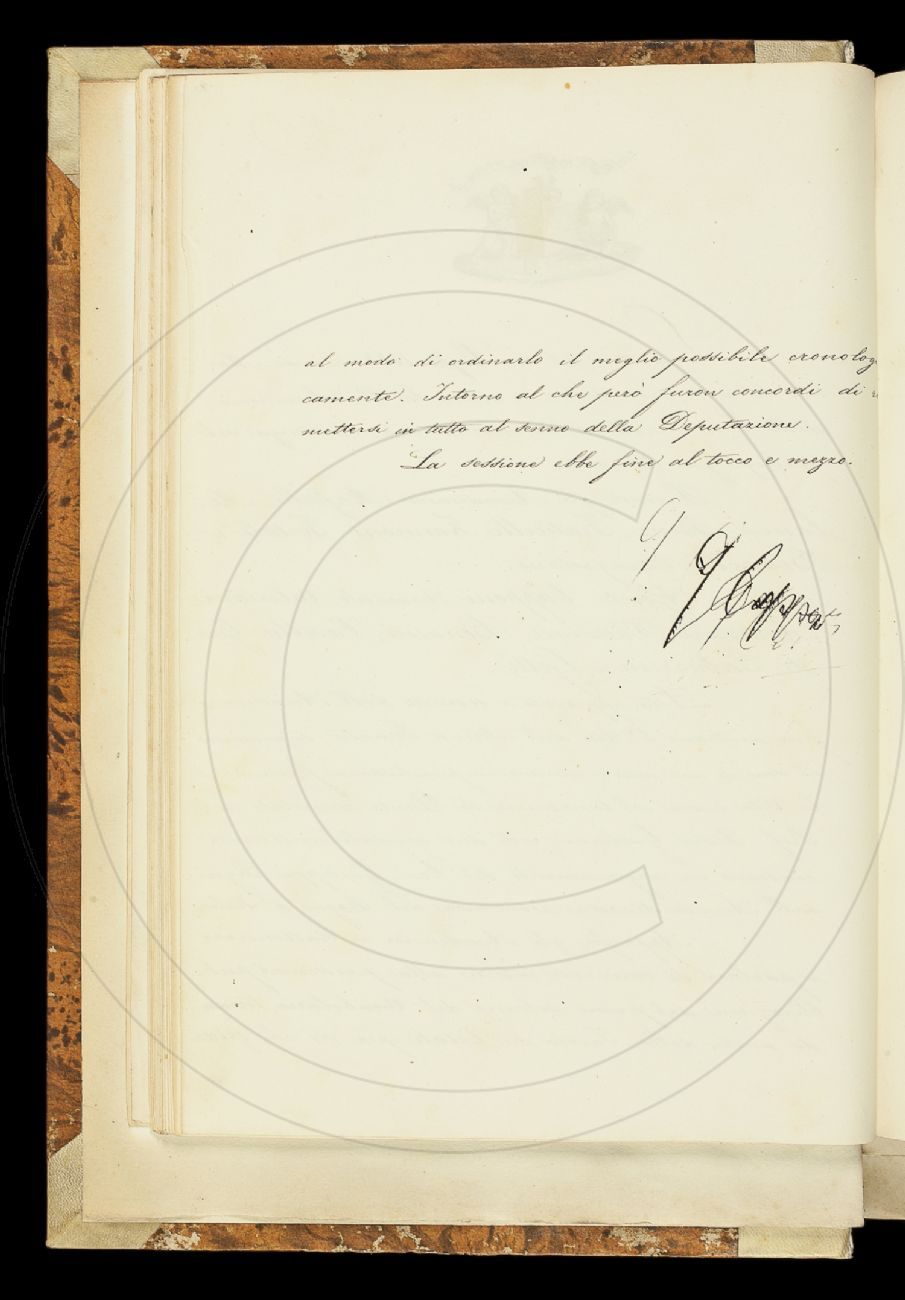 al modo di ordinarlo il meglio possibile cronolog
camente. Intorno al che però furon concordi di
mettersi in tutto al senno della Deputazione.
La sessione ebbe fine al tocco e mezzo.
G
G Capponi